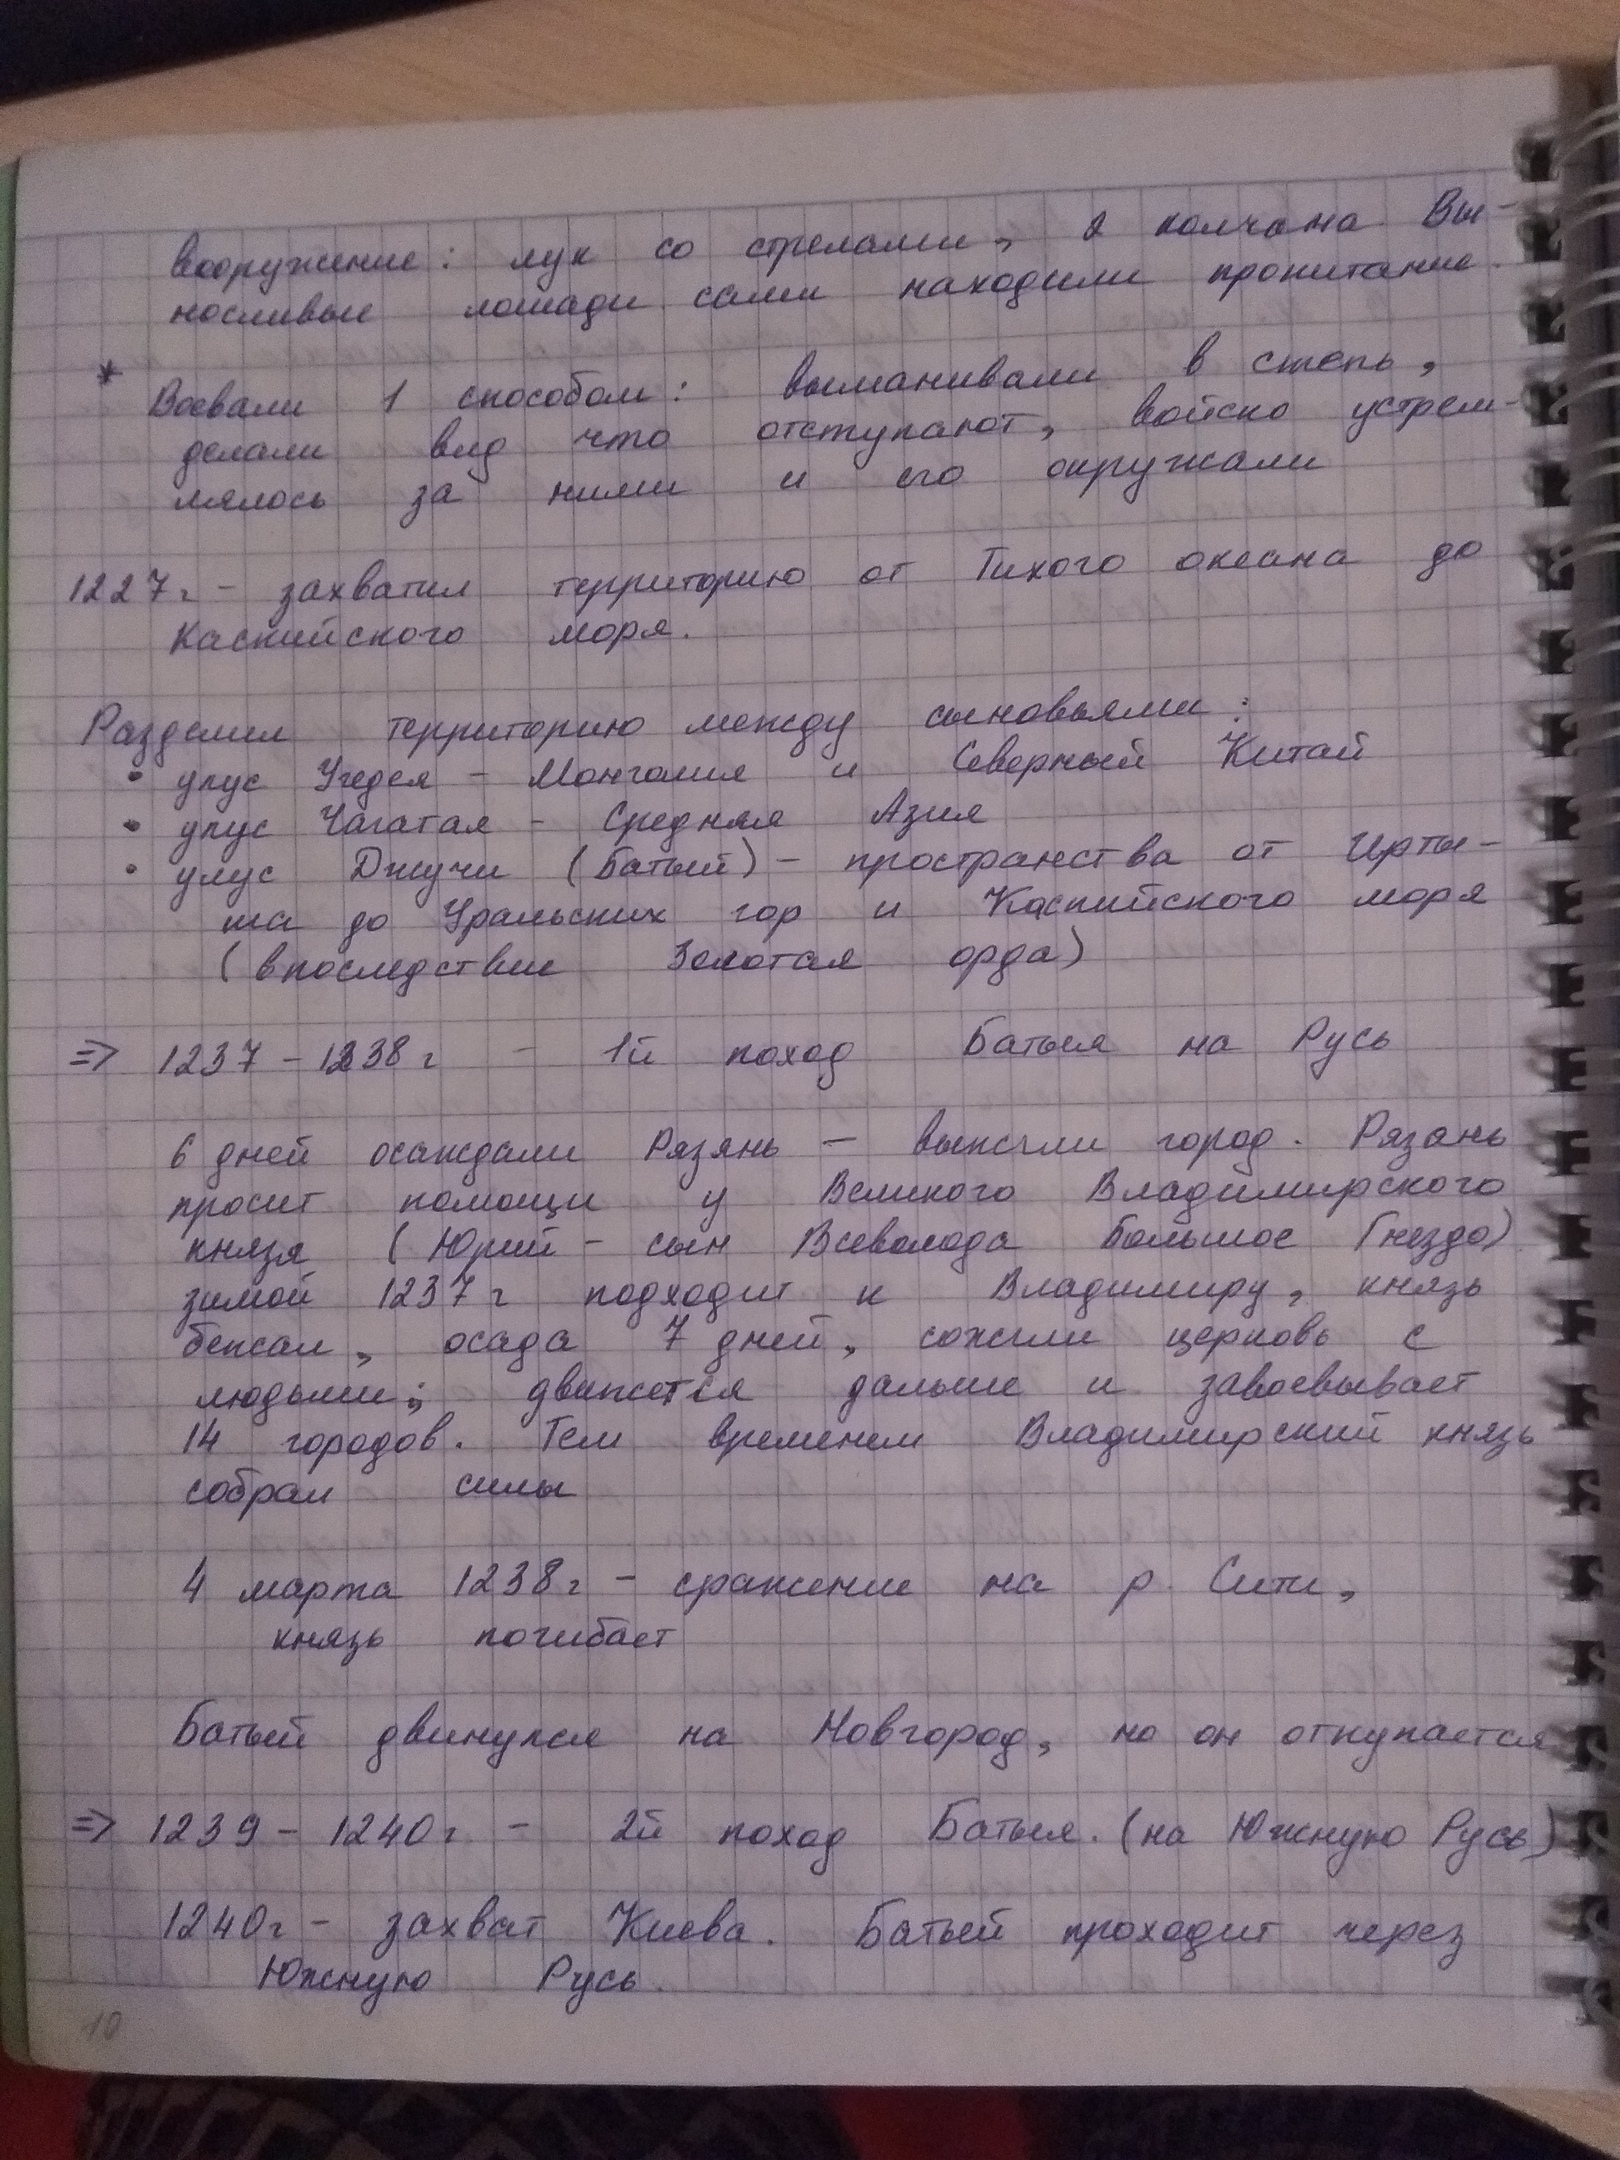 вооружение: лук со стрелами, 2 колчана. Вы-
носливые лошади сами находили пропитание.
* Воевали 1 способом: выманивали в степь,
делали вид что отступают, войско устрем-
лялось за ними и его окружали
1227г. - захватил территорию от Тихого океана до
Каспийского моря.
Разделил территорию между сыновьями:
• улус Угедея - Монголия и Северный Китай
• улус Чагатая - Средняя Азия
• улус Джучи (Батый) - пространства от Ирты-
ша до Уральских гор и Каспийского моря
(впоследствие Золотая орда)
=> 1237-1238г - 1й поход Батыя на Русь
6 дней осаждали Рязянь - выжгли город. Рязань
просит помощи у Великого Владимирского
князя (Юрий - сын Всеволода Большое Гнездо)
зимой 1237г подходит к Владимиру, князь
бежал, осада 7 дней, сожгли церковь с
людьми; движется дальше и завоевывает
14 городов. Тем временем Владимирский князь
собрал силы
4 марта 1238г - сражение на р. Сити,
князь погибает
Батый двинулся на Новгород, но он откупается
=> 1239-1240г - 2й поход Батыя. (на Южную Русь)
1240г - захват Киева. Батый проходит через
Южную Русь.
10